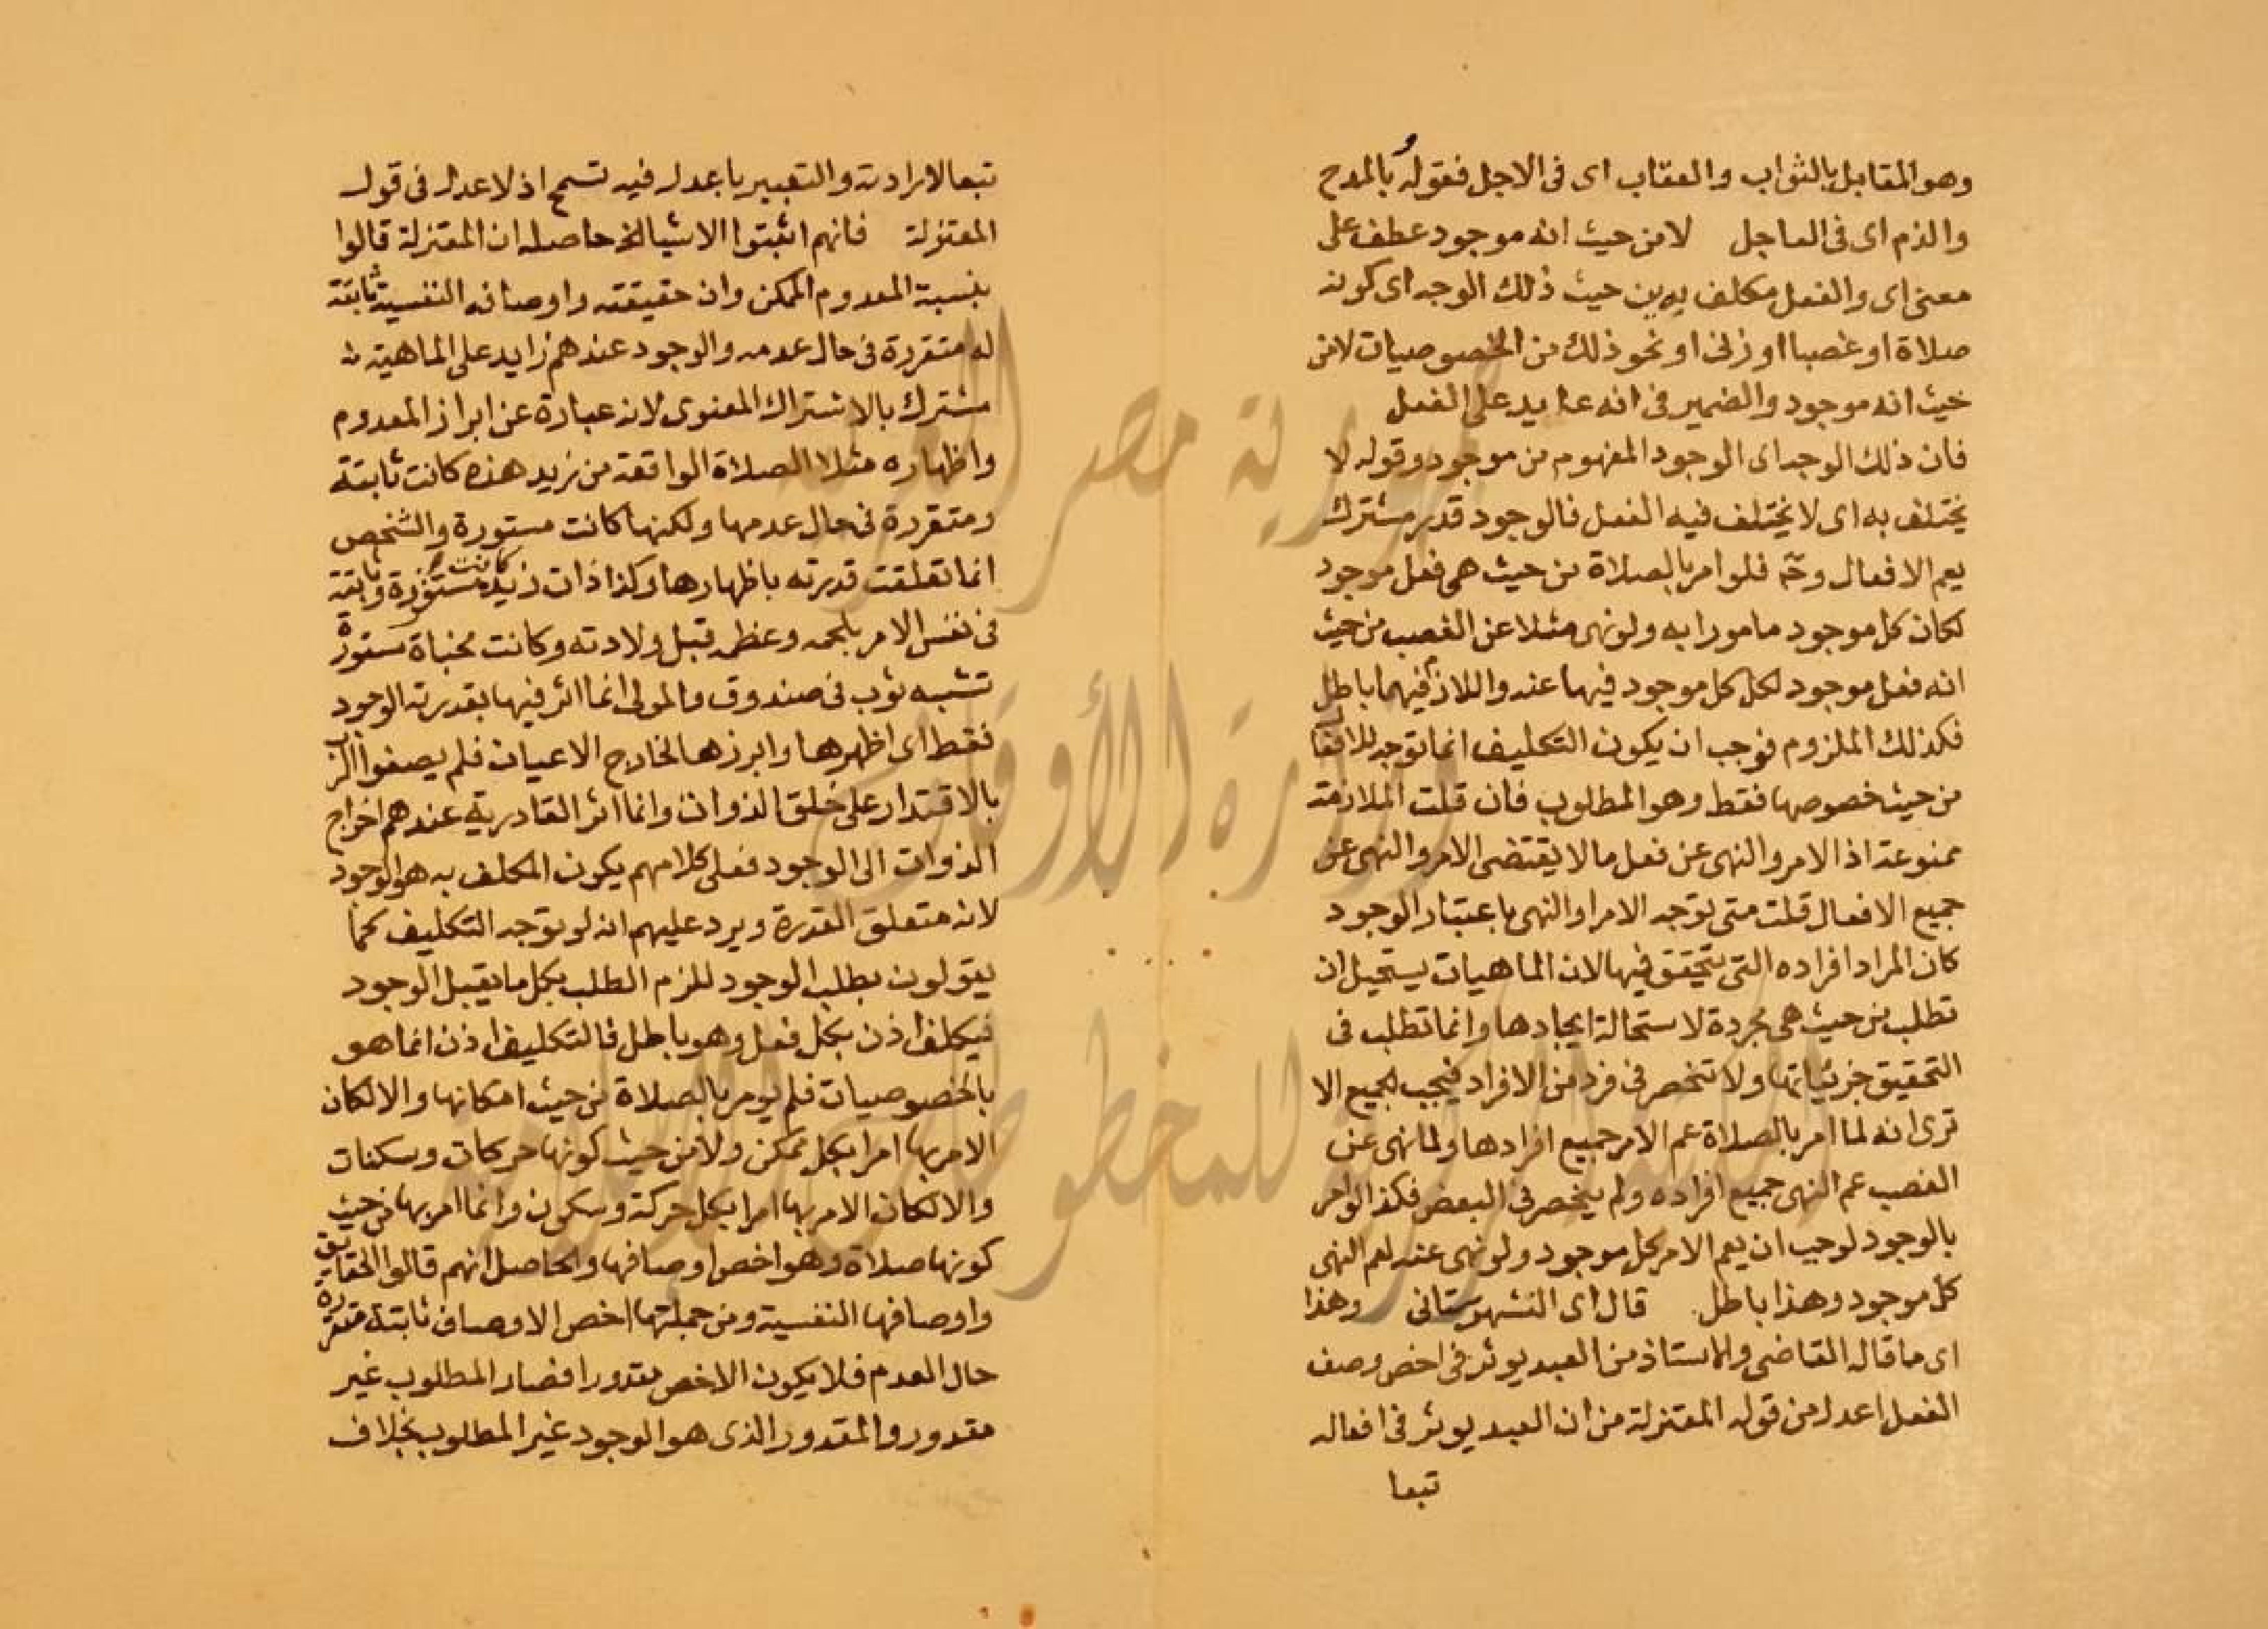 وهو المقابل بالثواب والعقاب اى فى الاجل فقوله وبالمدح
والذم اى فى العاجل لا من حيث انه موجود عطف على
معنى اى والفعل مكلف به من حيث ذلك الوجه اى كونه
صلاة او غصبا او زنى او نحو ذلك من الخصوصيات لا من
حيث انه موجود والضمير فى انه عايد على الفعل
فان ذلك الوجه اى الوجود المفهوم من موجود وقوله لا
يختلف به اى لا يختلف فيه الفعل فالوجود قدر مشترك
يعم الافعال وحّ فلو امر بالصلاة من حيث هى فعل موجود
لكان كل موجود مامورا به ولو نهى مثلا عن الغصب من حيث
انه فعل موجود لكل كل موجود فيها عنه واللازم فيهما باطل
فكذلك الملزوم فوجب ان يكون التكليف انما توجه للافعال
من حيث خصوصها فقط وهو المطلوب فان قلت الملازمة
ممنوعة اذ الامر والنهى عن فعل ما لا يقتضى الامر والنهى عن
جميع الافعال قلت متى توجه الامر او النهى باعتبار الوجود
كان المراد افراده التى يتحقق فيها لان الماهيات يستحيل ان
تطلب من حيث هى مجردة لاستحالة ايجادها وانما تطلب فى
التحقيق جزئياتها ولا تنحصر فى فرد من الافراد فيجب لجميع الا
ترى انه لما امر بالصلاة عم الامر جميع افرادها ولما نهى عن
الغصب عم النهى جميع افراده ولم ينحصر فى البعض فكذا لو امر
بالوجود لوجب ان يعم الامر كل موجود ولو نهى عنه لعم النهى
كل موجود وهذا باطل. قال اى الشهرستانى وهذا
اى ما قاله القاضى والاستاذ من العبد يوثر فى اخص وصف
الفعل اعدل من قوله المعتزلة من ان العبد يوثر فى افعاله
تبعا
تبعا لارادته والتعبير باعدل فيه تسمح اذ لا عدل فى قول
المعتزلة فانهم اثبتوا الاشيا الخ حاصله ان المعتزلة قالوا
بنسبة المعدوم الممكن وان حقيقته واوصافه النفسية ثابتة
له متقررة فى حال عدمه والوجود عندهم زايد على الماهية
مشترك بالاشتراك المعنوى لانه عبارة عن ابراز المعدوم
واظهاره مثلا الصلاة الواقعة من زيد هذه كانت ثابتة
ومتقررة فى حال عدمها ولكنها كانت مستورة والشخص
انما تعلقت قدرته باظهارها وكذا ذات زيد كانت مستورة وثابتة
فى نفس الامر بلحمه وعظمه قبل ولادته وكانت مخباة مستورة
تشبه ثوب فى صندوق والمولى انما اثر فيها بقدرته الوجود
فقط اى اظهرها وابرزها لخارج الاعيان فلم يصفوا الرب
بالاقتدار على خلق الذوات وانما اثر القادرية عندهم اخراج
الذوات الى الوجود فعلى كلامهم يكون المكلف به هو الوجود
لانه متعلق القدرة ويرد عليهم انه لو توجه التكليف كما
يقولون بطلب الوجود للزم الطلب بكل ما يقبل الوجود
فيكلف اذن بكل فعل وهو باطل فالتكليف اذن انما هو
بالخصوصيات فلم يومر بالصلاة من حيث امكانها والا لكان
الامر بها امرا بكل ممكن ولا من حيث كونها حركات وسكنات
والا لكان الامر بها امرا بكل حركة وسكون وانما امر بها من حيث
كونها صلاة وهو اخص اوصافها والحاصل انهم قالوا الحقايق
واوصافها النفسية ومن جملتها اخص الاوصاف ثابتة متقررة
حال العدم فلا يكون الاخص مقدورا فصار المطلوب غير
مقدور والمقدور الذى هو الوجود غير المطلوب بخلاف
جمهورية مصر العربية
وزارة الأوقاف
المكتبة المركزية للمخطوطات الإسلامية